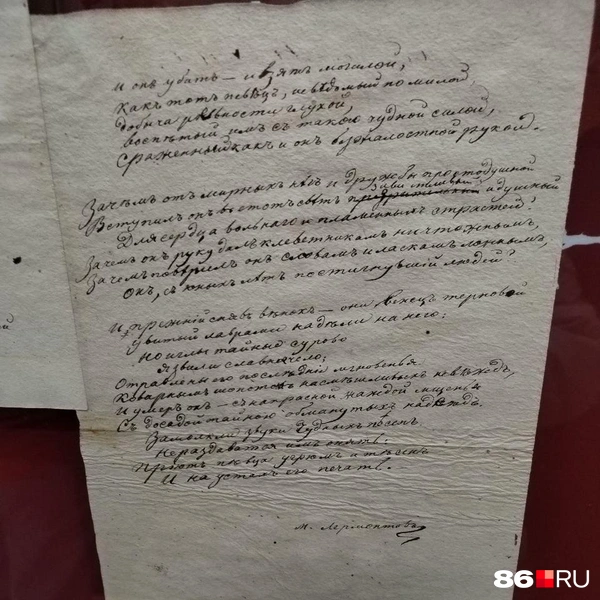 И онъ убитъ — и взятъ могилой,
Какъ тотъ пѣвецъ, невѣдомый но милой,
добыча ревности глухой,
воспѣтый имъ съ такою чудной силой,
Сраженный какъ и онъ безжалостной рукой.
Зачѣмъ отъ мирныхъ нѣгъ и дружбы простодушной
завистливый
Вступилъ онъ въ этотъ свѣтъ и душный
Для сердца вольнаго и пламенныхъ страстей?
Зачемъ онъ руку далъ клеветникамъ ничтожнымъ,
Зачемъ поверилъ онъ словамъ и ласкамъ ложнымъ,
Онъ, съ юныхъ лѣтъ постигнувшій людей?
И прежній снявъ вѣнокъ — они венецъ терновой
увитый лаврами надѣли на него:
Но иглы тайныя сурово
Язвили славное чело;
Отравлены его послѣдніе мгновенья
Коварнымъ шопотомъ насмѣшливыхъ невѣждъ,
И умеръ онъ — съ напрасной жаждой мщенья
Съ досадой тайною обманутыхъ надеждъ.
Замолкли звуки чудныхъ песенъ
Не раздаваться имъ опять:
Пріютъ пѣвца угрюмъ и тѣсенъ
И на устахъ его печать.
М. Лермонтовъ
ой
86.RU